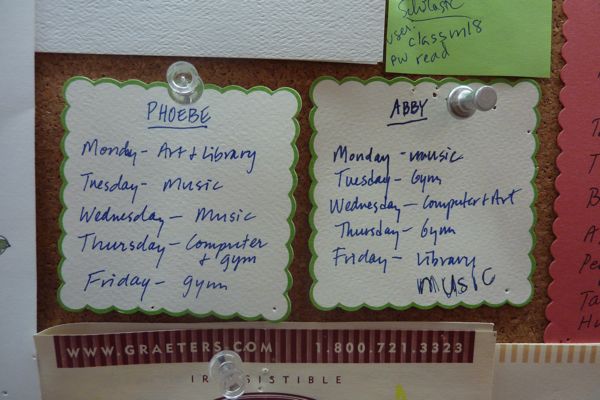 Scholastic
user: classm18
pw read
PHOEBE
Monday - Art & Library
Tuesday - Music
Wednesday - Music
Thursday - Computer
+ gym
Friday - gym
ABBY
Monday - music
Tuesday - Gym
Wednesday - Computer + Art
Thursday - Gym
Friday - Library
music
WWW.GRAETERS.COM 1.800.721.3323